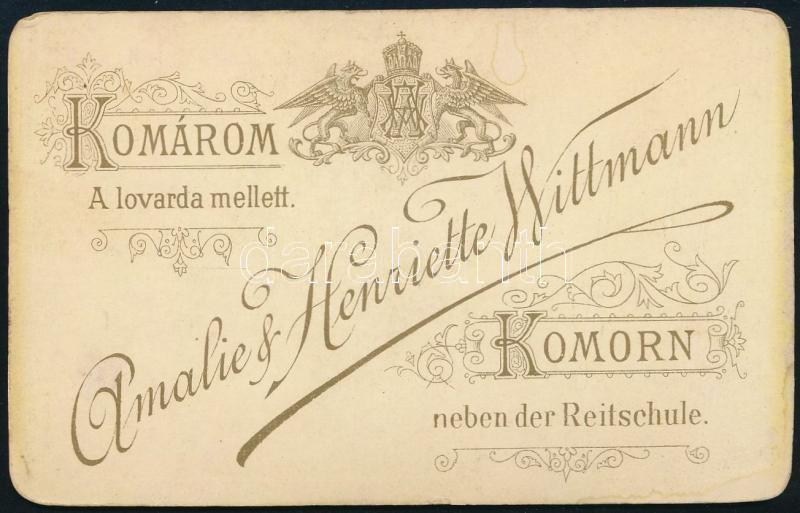 KOMÁROM
A lovarda mellett.
Amalie & Henriette Wittmann
KOMORN
neben der Reitschule.
darabanth